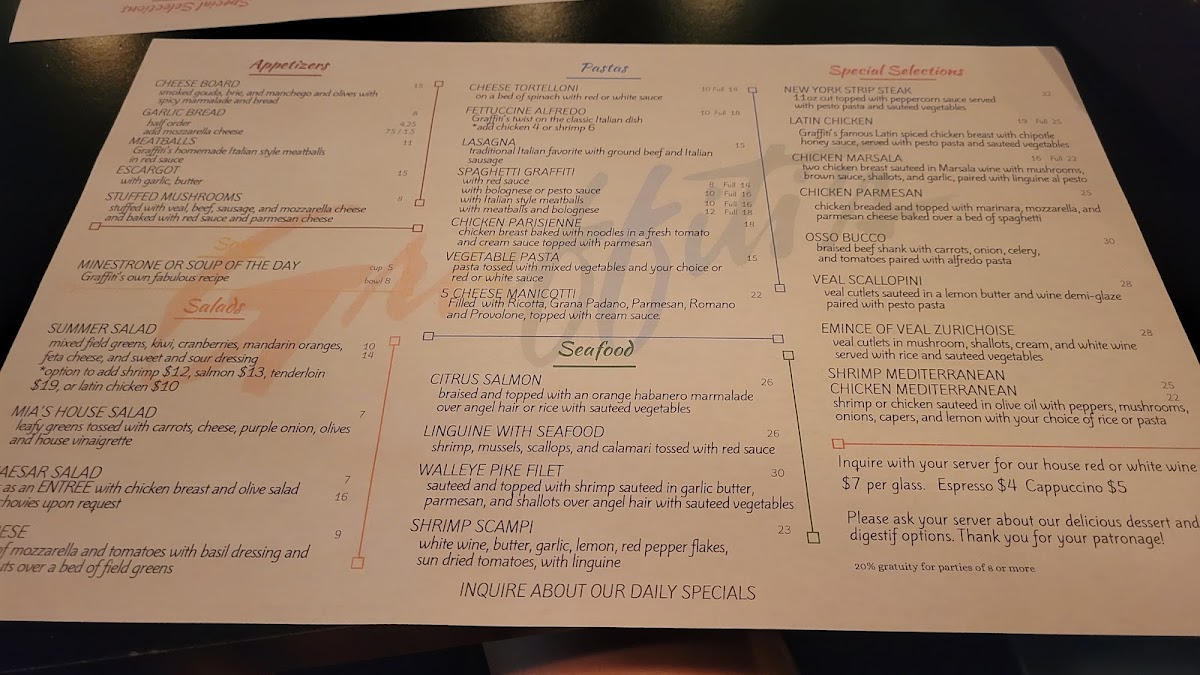 Special Selections
Appetizers
CHEESE BOARD 15
smoked gouda, brie, and manchego and olives with
spicy marmalade and bread
GARLIC BREAD 8
half order 4.25
add mozzarella cheese .75 / 1.5
MEATBALLS 11
Graffiti's homemade Italian style meatballs
in red sauce
ESCARGOT 15
with garlic, butter
STUFFED MUSHROOMS 8
stuffed with veal, beef, sausage, and mozzarella cheese
and baked with red sauce and parmesan cheese
MINESTRONE OR SOUP OF THE DAY cup 5
Graffiti's own fabulous recipe bowl 8
Salads
SUMMER SALAD
mixed field greens, kiwi, cranberries, mandarin oranges, 10
feta cheese, and sweet and sour dressing 14
*option to add shrimp $12, salmon $13, tenderloin
$19, or latin chicken $10
MIA'S HOUSE SALAD 7
leafy greens tossed with carrots, cheese, purple onion, olives
and house vinaigrette
AESAR SALAD 7
as an ENTREE with chicken breast and olive salad 16
chovies upon request
ESE 9
of mozzarella and tomatoes with basil dressing and
uts over a bed of field greens
Pastas
CHEESE TORTELLONI 10 Full 18
on a bed of spinach with red or white sauce
FETTUCCINE ALFREDO 10 Full 18
Graffiti's twist on the classic Italian dish
*add chicken 4 or shrimp 6
LASAGNA 15
traditional Italian favorite with ground beef and Italian
sausage
SPAGHETTI GRAFFITI
with red sauce 8 Full 14
with bolognese or pesto sauce 10 Full 16
with Italian style meatballs 10 Full 16
with meatballs and bolognese 12 Full 18
CHICKEN PARISIENNE 18
chicken breast baked with noodles in a fresh tomato
and cream sauce topped with parmesan
VEGETABLE PASTA 15
pasta tossed with mixed vegetables and your choice or
red or white sauce
5 CHEESE MANICOTTI 22
Filled with Ricotta, Grana Padano, Parmesan, Romano
and Provolone, topped with cream sauce.
Seafood
CITRUS SALMON 26
braised and topped with an orange habanero marmalade
over angel hair or rice with sauteed vegetables
LINGUINE WITH SEAFOOD 26
shrimp, mussels, scallops, and calamari tossed with red sauce
WALLEYE PIKE FILET 30
sauteed and topped with shrimp sauteed in garlic butter,
parmesan, and shallots over angel hair with sauteed vegetables
SHRIMP SCAMPI 23
white wine, butter, garlic, lemon, red pepper flakes,
sun dried tomatoes, with linguine
INQUIRE ABOUT OUR DAILY SPECIALS
Special Selections
NEW YORK STRIP STEAK 32
11oz cut topped with peppercorn sauce served
with pesto pasta and sauteed vegetables
LATIN CHICKEN 19 Full 25
Graffiti's famous Latin spiced chicken breast with chipotle
honey sauce, served with pesto pasta and sauteed vegetables
CHICKEN MARSALA 16 Full 22
two chicken breast sauteed in Marsala wine with mushrooms,
brown sauce, shallots, and garlic, paired with linguine al pesto
CHICKEN PARMESAN 25
chicken breaded and topped with marinara, mozzarella, and
parmesan cheese baked over a bed of spaghetti
OSSO BUCCO 30
braised beef shank with carrots, onion, celery,
and tomatoes paired with alfredo pasta
VEAL SCALLOPINI 28
veal cutlets sauteed in a lemon butter and wine demi-glaze
paired with pesto pasta
EMINCE OF VEAL ZURICHOISE 28
veal cutlets in mushroom, shallots, cream, and white wine
served with rice and sauteed vegetables
SHRIMP MEDITERRANEAN 25
CHICKEN MEDITERRANEAN 22
shrimp or chicken sauteed in olive oil with peppers, mushrooms,
onions, capers, and lemon with your choice of rice or pasta
Inquire with your server for our house red or white wine
$7 per glass. Espresso $4 Cappuccino $5
Please ask your server about our delicious dessert and
digestif options. Thank you for your patronage!
20% gratuity for parties of 8 or more
Graffiti